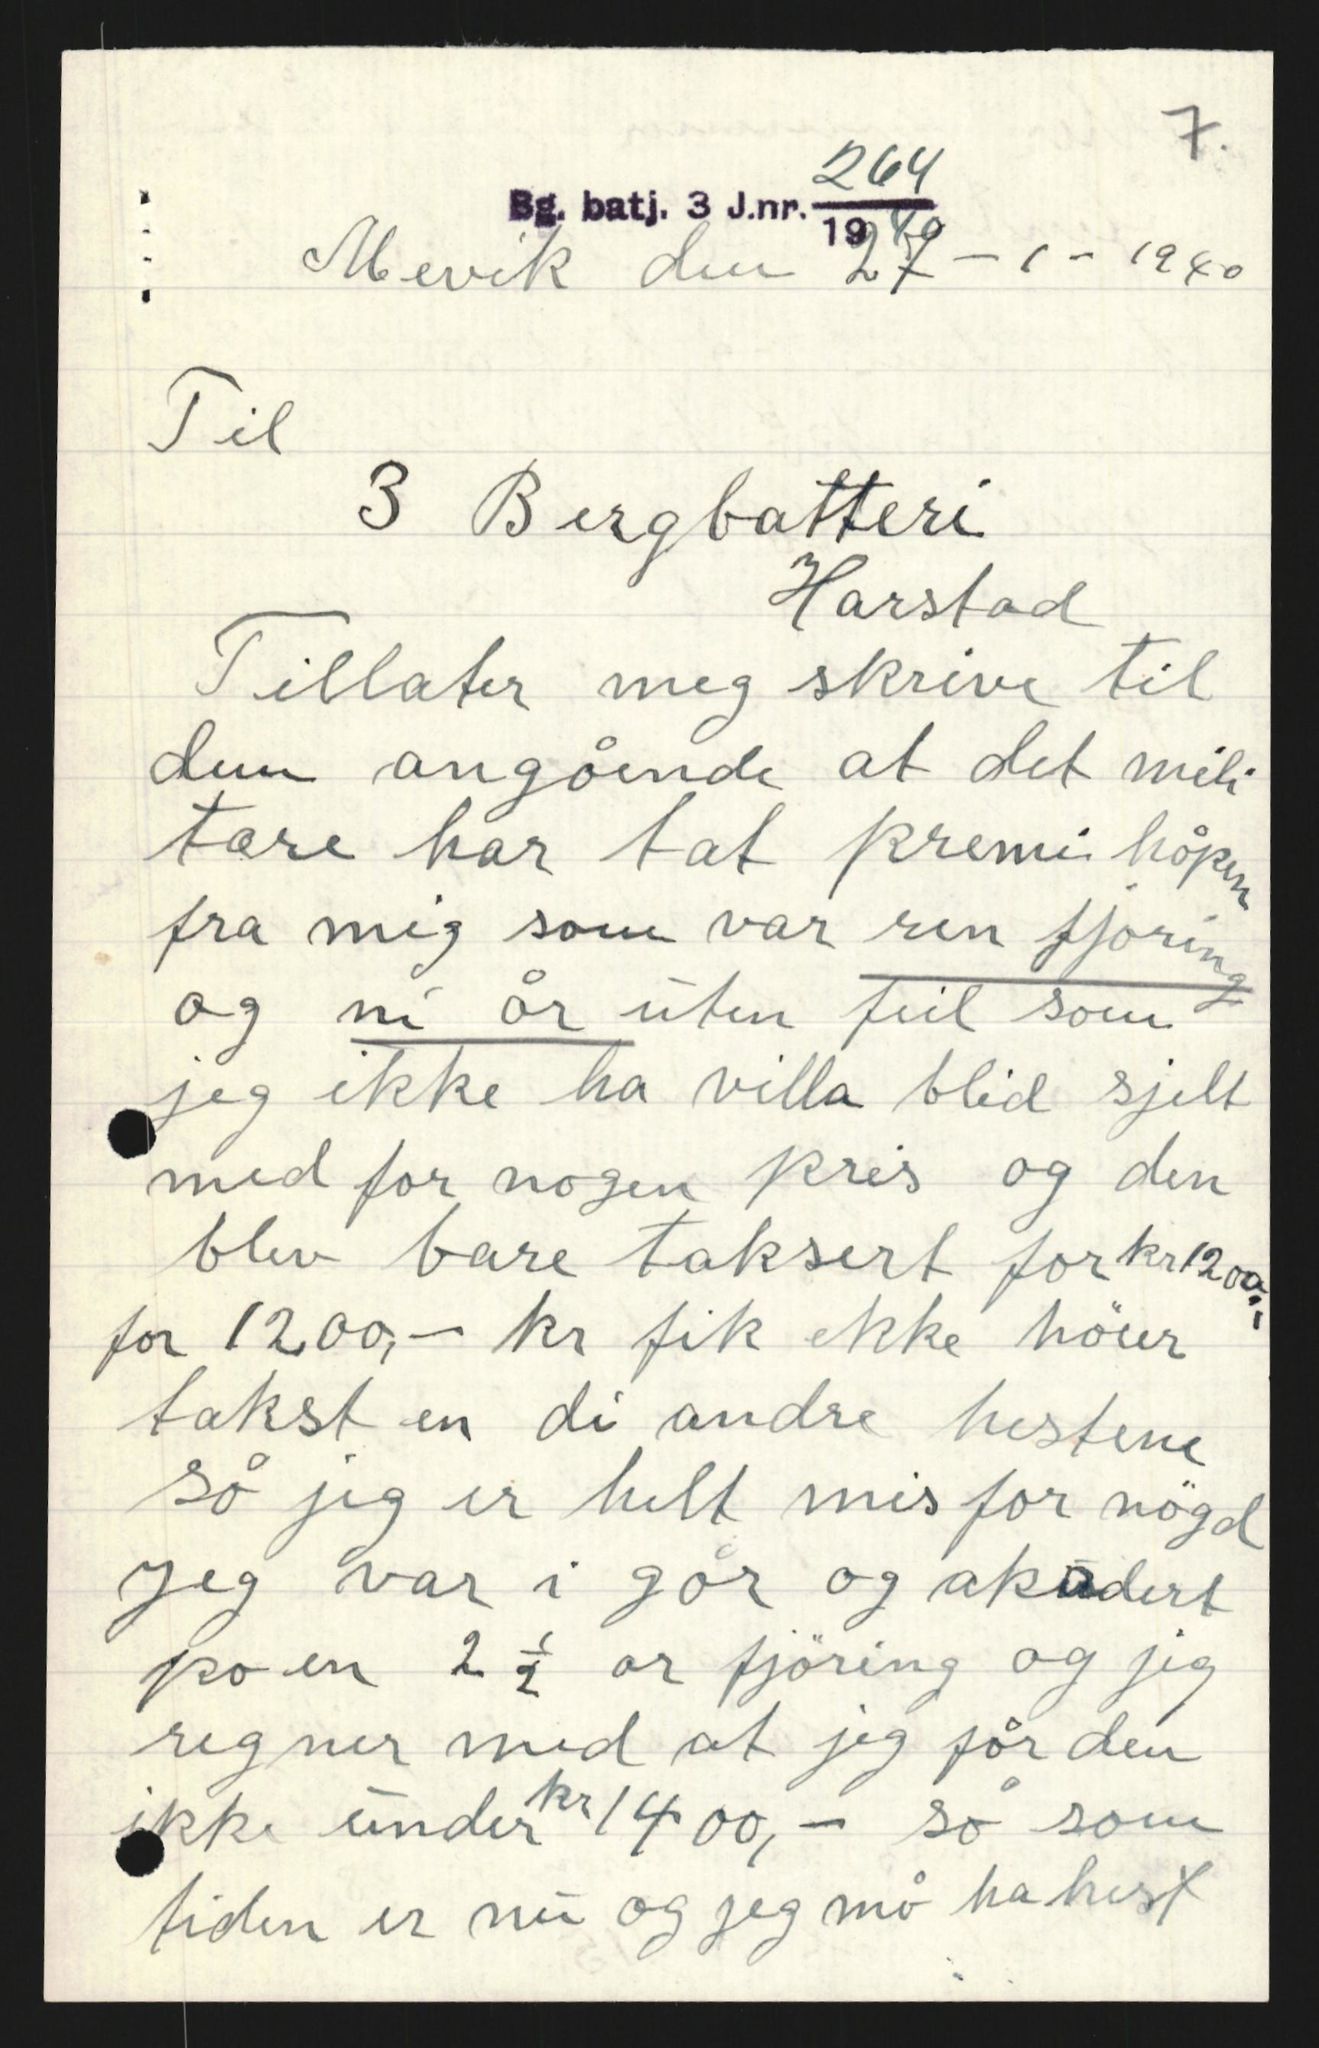 7.
264
Bg. batj. 3 J.nr.
1940
Mevik den 27 - 1 - 1940
Til
3 Bergbatteri
Harstad
Tillater meg skrive til
dem angående at det mili
tære har tat premi håpen
fra mig som var ren fjöring
og ni år uten feil som
jeg ikke ha villa blid sjelt
med for nogen pris og den
blev bare taksert for kr 1200,-
for 1200,- kr fik ekke höier
takst en di andre hestene
så jeg er helt misfornögd
Jeg var i går og akudert
po en 2 1/2 or fjöring og jeg
regner med at jeg får den
ikke under kr 1400,- så som
tiden er nu og jeg må ha hest